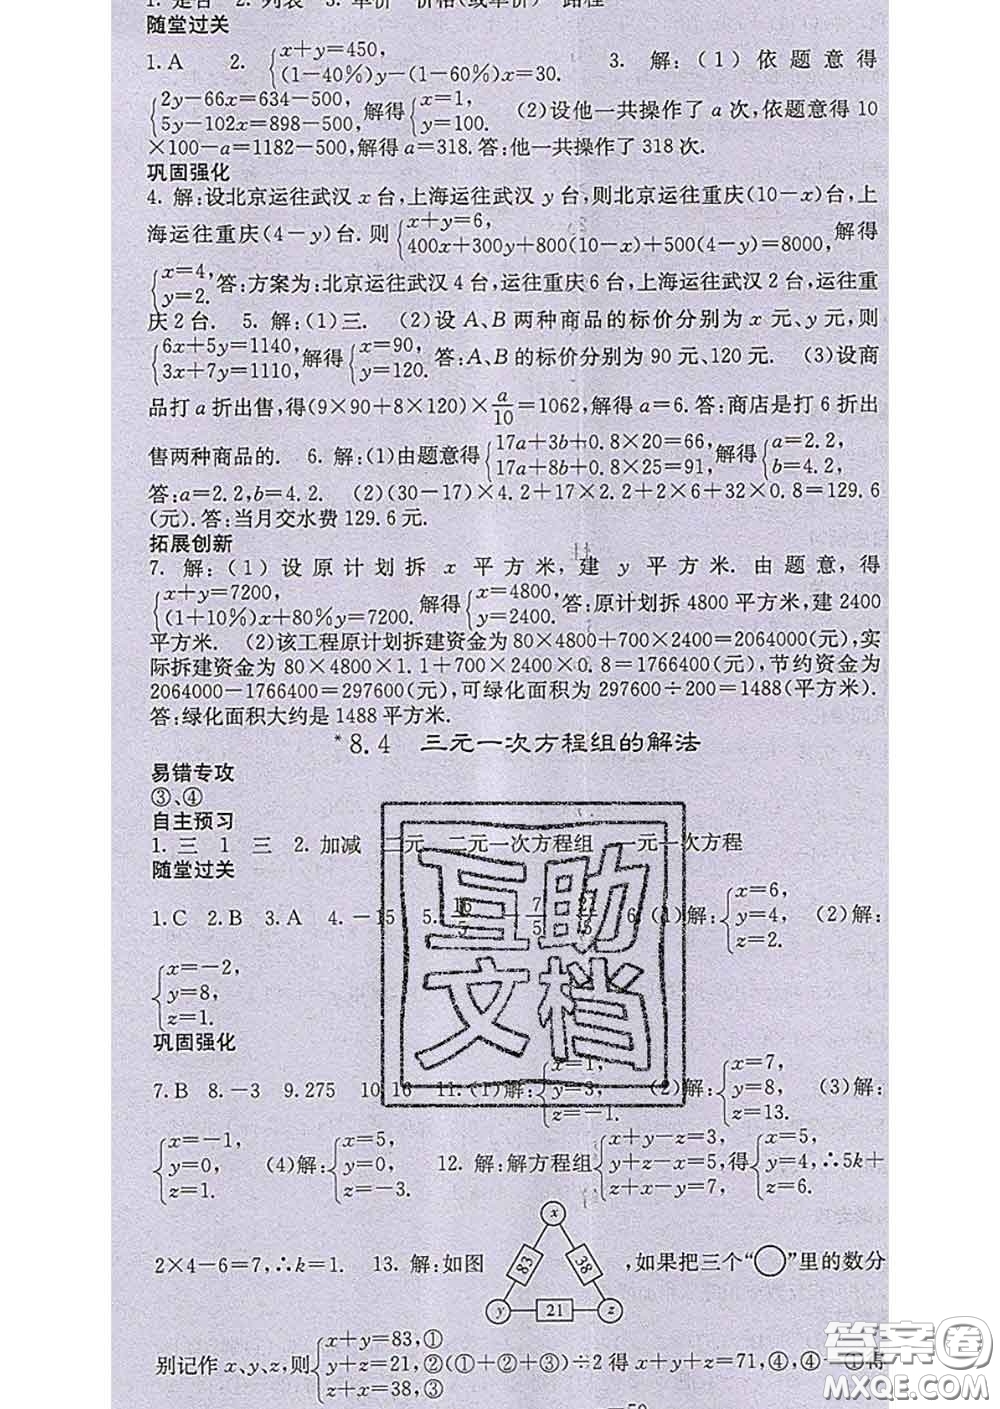 1. 是否 2. 列表 3. 单价 价格(或单价) 路程
随堂过关
1. A 2. {x+y=450, (1-40%)y-(1-60%)x=30. 3. 解:(1)依题意得
{2y-66x=634-500, 5y-102x=898-500, 解得{x=1, y=100. (2)设他一共操作了a次,依题意得10
×100-a=1182-500,解得a=318.答:他一共操作了318次.
巩固强化
4. 解:设北京运往武汉x台,上海运往武汉y台,则北京运往重庆(10-x)台,上
海运往重庆(4-y)台.则{x+y=6, 400x+300y+800(10-x)+500(4-y)=8000, 解得
{x=4, y=2. 答:方案为:北京运往武汉4台,运往重庆6台,上海运往武汉2台,运往重
庆2台. 5. 解:(1)三. (2)设A、B两种商品的标价分别为x元、y元,则
{6x+5y=1140, 3x+7y=1110, 解得{x=90, y=120. 答:A、B的标价分别为90元、120元. (3)设商
品打a折出售,得(9×90+8×120)×a/10=1062,解得a=6.答:商店是打6折出
售两种商品的. 6. 解:(1)由题意得{17a+3b+0.8×20=66, 17a+8b+0.8×25=91, 解得{a=2.2, b=4.2.
答:a=2.2,b=4.2. (2)(30-17)×4.2+17×2.2+2×6+32×0.8=129.6
(元).答:当月交水费129.6元.
拓展创新
7. 解:(1)设原计划拆x平方米,建y平方米.由题意,得
{x+y=7200, (1+10%)x+80%y=7200. 解得{x=4800, y=2400. 答:原计划拆4800平方米,建2400
平方米. (2)该工程原计划拆建资金为80×4800+700×2400=2064000(元),实
际拆建资金为80×4800×1.1+700×2400×0.8=1766400(元),节约资金为
2064000-1766400=297600(元),可绿化面积为297600÷200=1488(平方米).
答:绿化面积大约是1488平方米.
*8.4 三元一次方程组的解法
易错专攻
③、④
自主预习
1. 三 1 三 2. 加减 二元一次方程组 一元一次方程
随堂过关
1. C 2. B 3. A 4. -15 5. 6. (1)解:{x=6, y=4, z=2. (2)解:
{x=-2, y=8, z=1.
巩固强化
7. B 8. -3 9. 275 10. 16 11. (1)解:{x=1, y=3, z=-1. (2)解:{x=7, y=8, z=13. (3)解:
{x=-1, y=0, z=1. (4)解:{x=5, y=0, z=-3. 12. 解:解方程组{x+y-z=3, y+z-x=5, z+x-y=7, 得{x=5, y=4, z=6. ∴5k+
2×4-6=7,∴k=1. 13. 解:如图 x 83 38 y 21 z ,如果把三个“○”里的数分
别记作x、y、z,则{x+y=83,① y+z=21,② z+x=38,③ (①+②+③)÷2得x+y+z=71,④,④-①得
互助
文档
答案圈
MXQE.COM